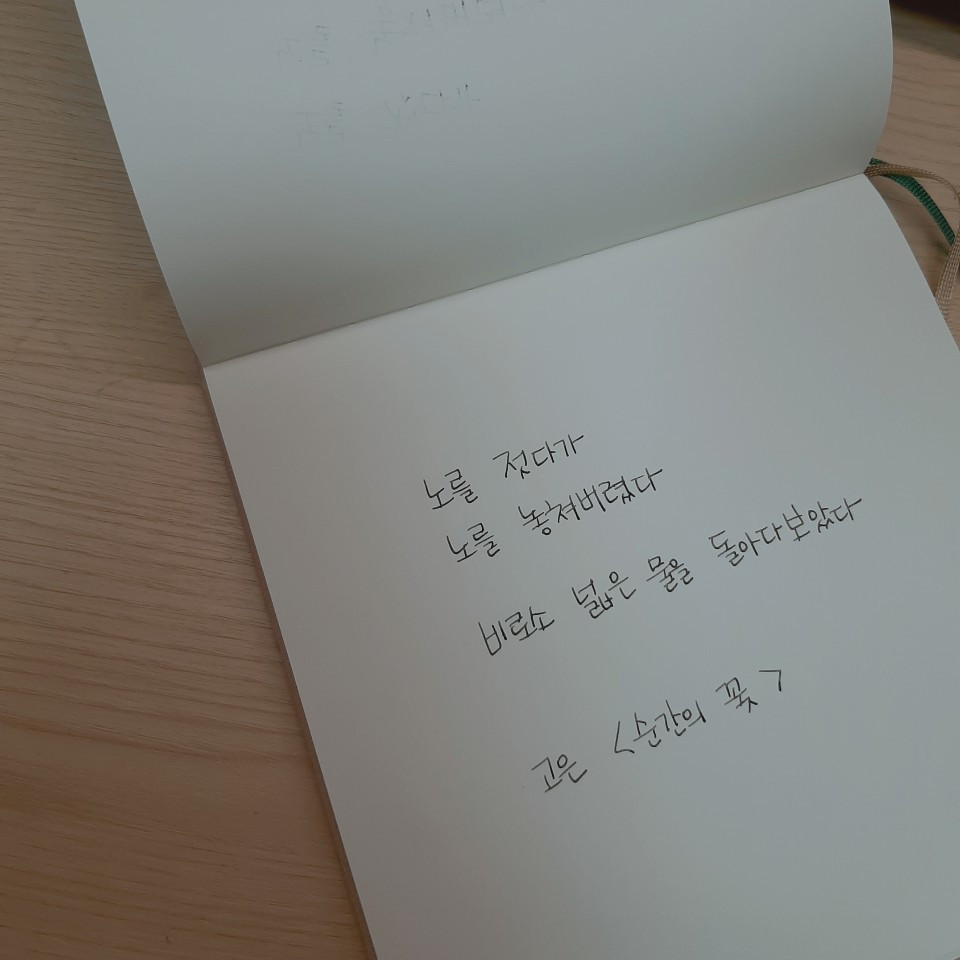 노를 젓다가
노를 놓쳐버렸다
비로소 넓은 물을 돌아다보았다
고은 <순간의 꽃>